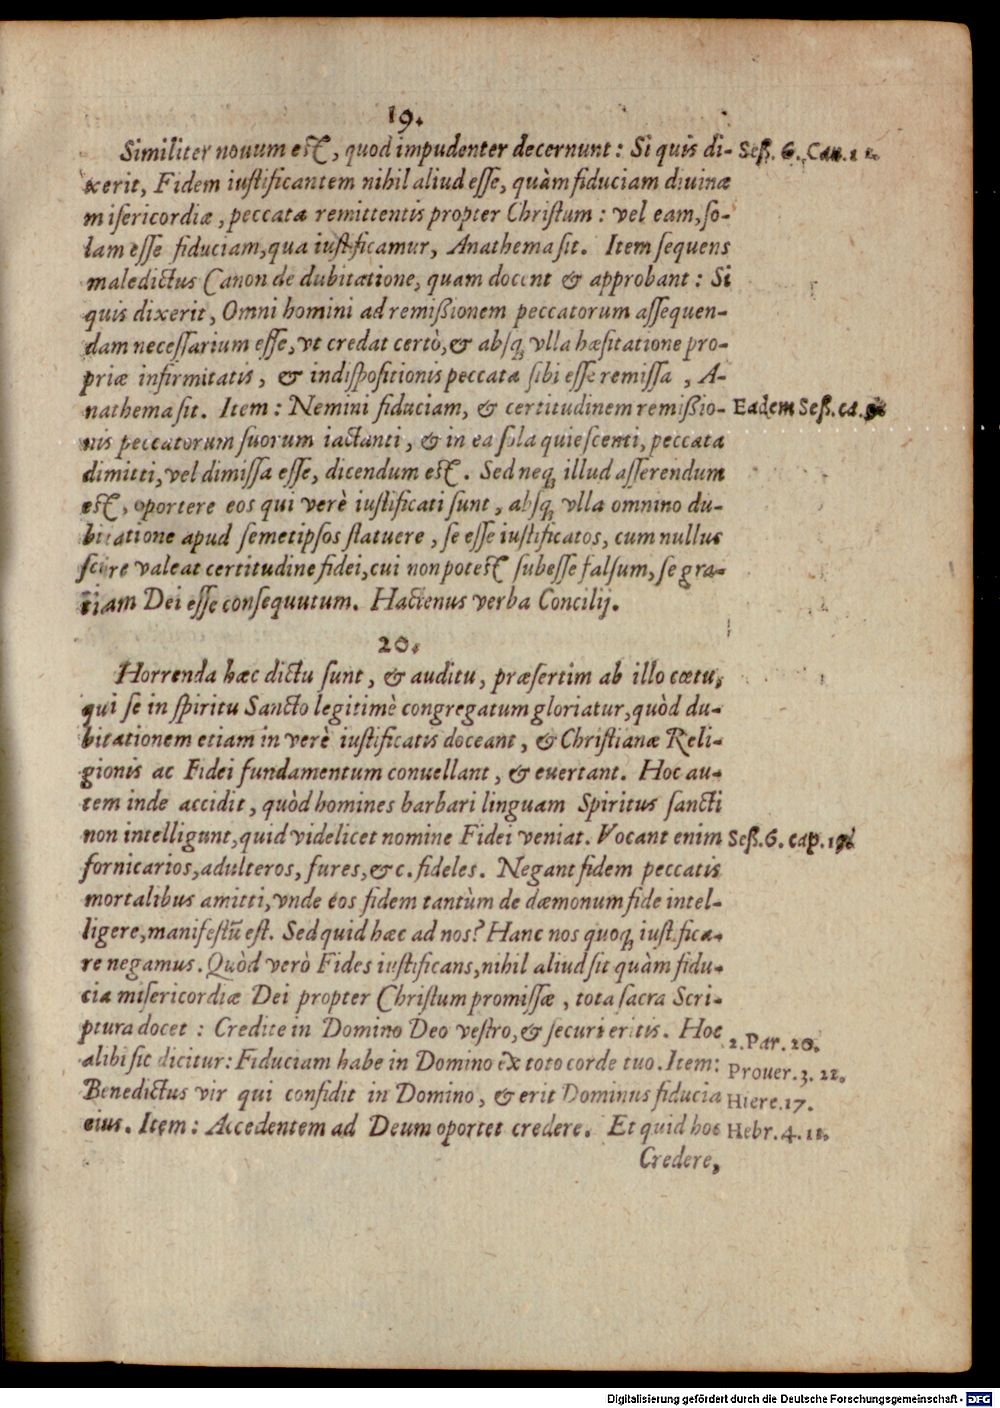 19.
Similiter nouum est, quod impudenter decernunt: Si quis di- Seß. 6. Can. 12.
xerit, Fidem iustificantem nihil aliud esse, quàm fiduciam diuinæ
misericordiæ, peccata remittentis propter Christum: vel eam, so-
lam esse fiduciam, qua iustificamur, Anathema sit. Item sequens
maledictus Canon de dubitatione, quam docent & approbant: Si
quis dixerit, Omni homini ad remißionem peccatorum assequen-
dam necessarium esse, vt credat certò, & absq; vlla hæsitatione pro-
priæ infirmitatis, & indispositionis peccata sibi esse remissa, A-
nathema sit. Item: Nemini fiduciam, & certitudinem remißio- Eadem Seß. ca. 9.
nis peccatorum suorum iactanti, & in ea sola quiescenti, peccata
dimitti, vel dimissa esse, dicendum est. Sed neq; illud asserendum
est, oportere eos qui verè iustificati sunt, absq; vlla omnino du-
bitatione apud semetipsos statuere, se esse iustificatos, cum nullus
scire valeat certitudine fidei, cui non potest subesse falsum, se gra-
tiam Dei esse consequutum. Hactenus verba Concilij.
20.
Horrenda hæc dictu sunt, & auditu, præsertim ab illo cœtu,
qui se in spiritu Sancto legitimè congregatum gloriatur, quòd du-
bitationem etiam in verè iustificatis doceant, & Christianæ Reli-
gionis ac Fidei fundamentum conuellant, & euertant. Hoc au-
tem inde accidit, quòd homines barbari linguam Spiritus sancti
non intelligunt, quid videlicet nomine Fidei veniat. Vocant enim Seß. 6. cap. 15.
fornicarios, adulteros, fures, &c. fideles. Negant fidem peccatis
mortalibus amitti, vnde eos fidem tantùm de dæmonum fide intel-
ligere, manifestū est. Sed quid hæc ad nos? Hanc nos quoq; iustifica-
re negamus. Quòd verò Fides iustificans, nihil aliud sit quàm fidu-
cia misericordiæ Dei propter Christum promissæ, tota sacra Scri-
ptura docet: Credite in Domino Deo vestro, & securi eritis. Hoc 2. Par. 20.
alibi sic dicitur: Fiduciam habe in Domino ex toto corde tuo. Item: Prouer. 3. 22.
Benedictus vir qui confidit in Domino, & erit Dominus fiducia Hiere. 17.
eius. Item: Accedentem ad Deum oportet credere. Et quid hoc Hebr. 4. 11.
Credere,
Digitalisierung gefördert durch die Deutsche Forschungsgemeinschaft - DFG